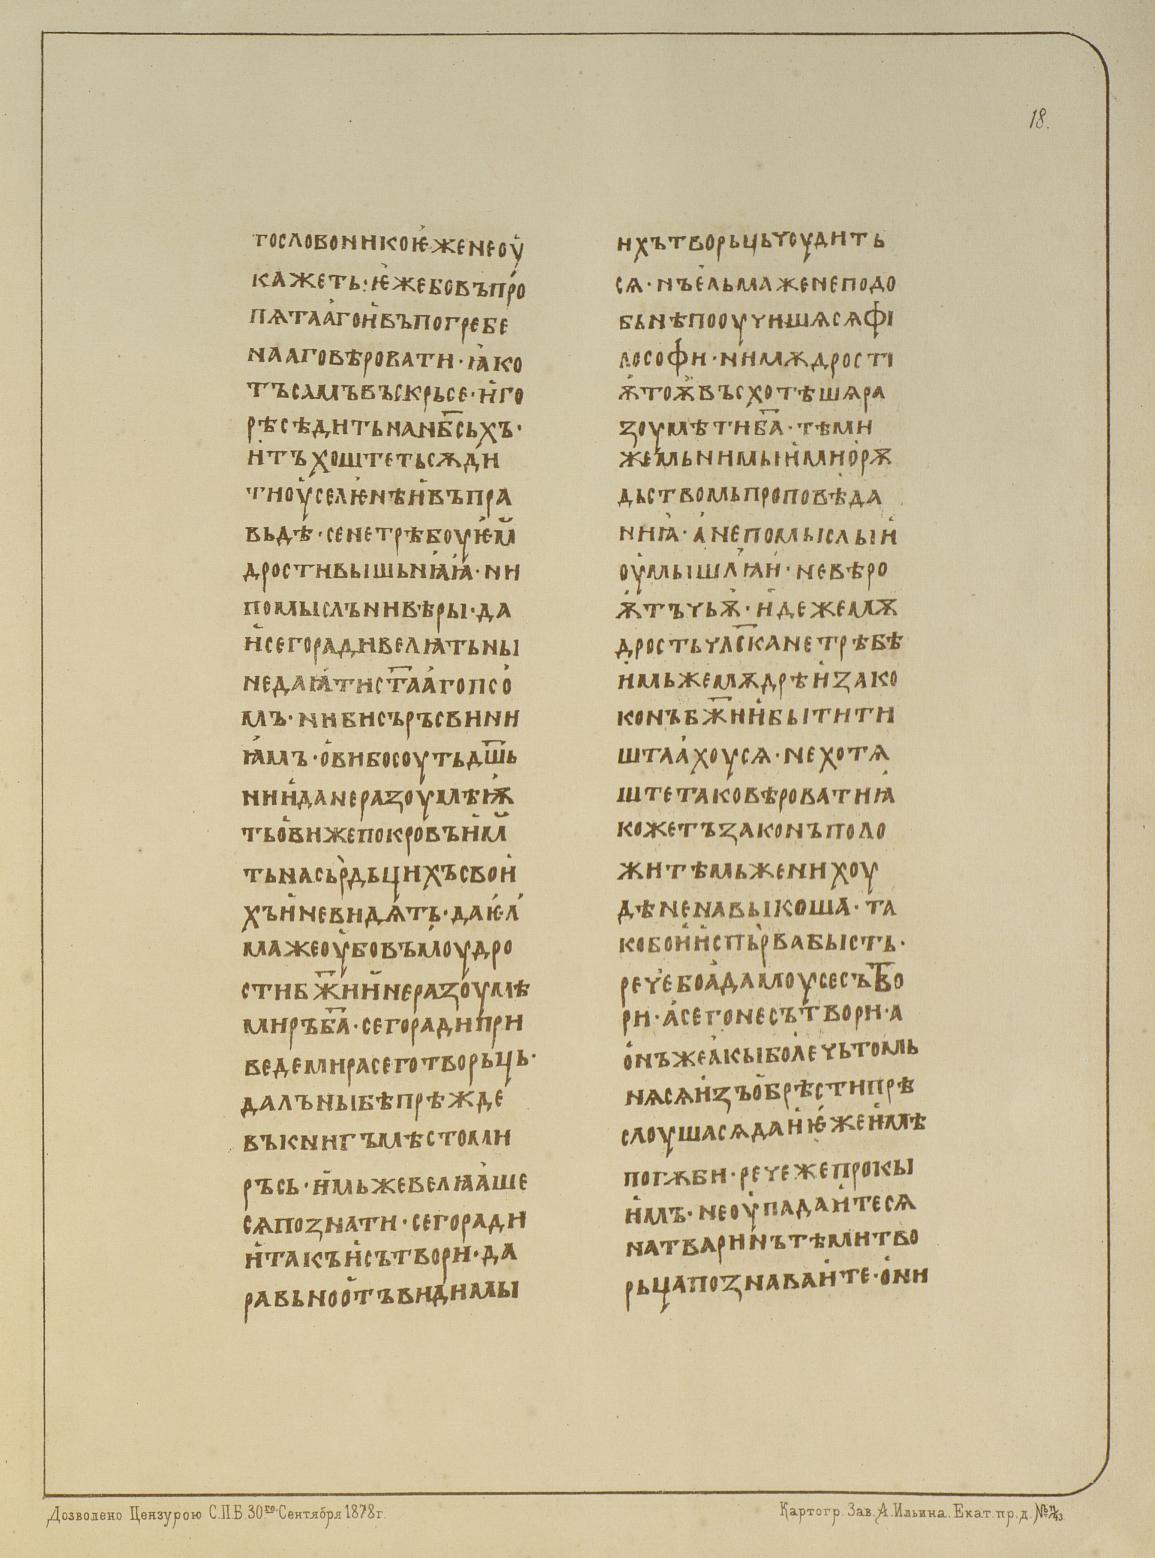 18.
тословоникоѥженеоу
кажеть·ѥжебовъпро
пѧтаагоивъпогребе
нааговѣровати·ꙗко
тъсамъвъскрьсе·иго
рѣсѣдитьнанб҃сьхъ·
итъхоштетьсѫди
тиоуселѥнѣивъпра
вьдѣ·сенетрѣбоуѥм
дростивышьнꙗꙗ·ни
помыслънивѣры·да
исегорадивелꙗтьны
недаꙗтист҃аагопсо
мъ·нибисъръсвини
ꙗмъ·овибосоутьдш҃ь
нииданеразоумѣѭ
тьовижепокровъим
тьнасьрдьцихъсвои
хъиневидѧть·даѥл
мажеоубовъмоудро
стибж҃иинеразоумѣ
миръб҃а·сегорадипри
ведемирасеготворьць·
далъныбѣпрѣжде
въкнигъмѣстоми
ръсь·имьжевелꙗаше
сѧпознати·сегоради
итакъисътвори·да
равьноотъвидимы
ихътворьцьчоудить
сѧ·нъельмаженеподо
бьнѣпооучишѧсѧфі
лософи·нимѫдрості
ѭтоѭвъсхотѣшѧра
зоумѣтиб҃а·тѣми
жемьнимыимиорѫ
дьствомьпроповѣда
ниꙗ·анепомыслыи
оумышлꙗи·невѣро
ѭтъчьѭ·идежемѫ
дростьчлс҃канетрѣбѣ
имьжемѫдрѣизако
конъбж҃иибытити
штаахоусѧ·нехотѧ
штетаковѣроватиꙗ
кожетъзаконъполо
житѣмьженихоу
дѣненавыкоша·та
кобоииспьрвабысть·
речебоадамоусесътво
ри·асегонесътвори·а
онъжеакыболечьтомь
нѧсѧизъобрѣстипрѣ
слоушасѧдаиѥжеимѣ
погѫби·речежепрокы
имъ·неоупадаитесѧ
натваринътѣмитво
рьцапознаваите·они
Дозволено Цензурою С.П.Б. 30го Сентября 1878 г.
Картогр. Зав. А. Ильина. Екат. пр. д.